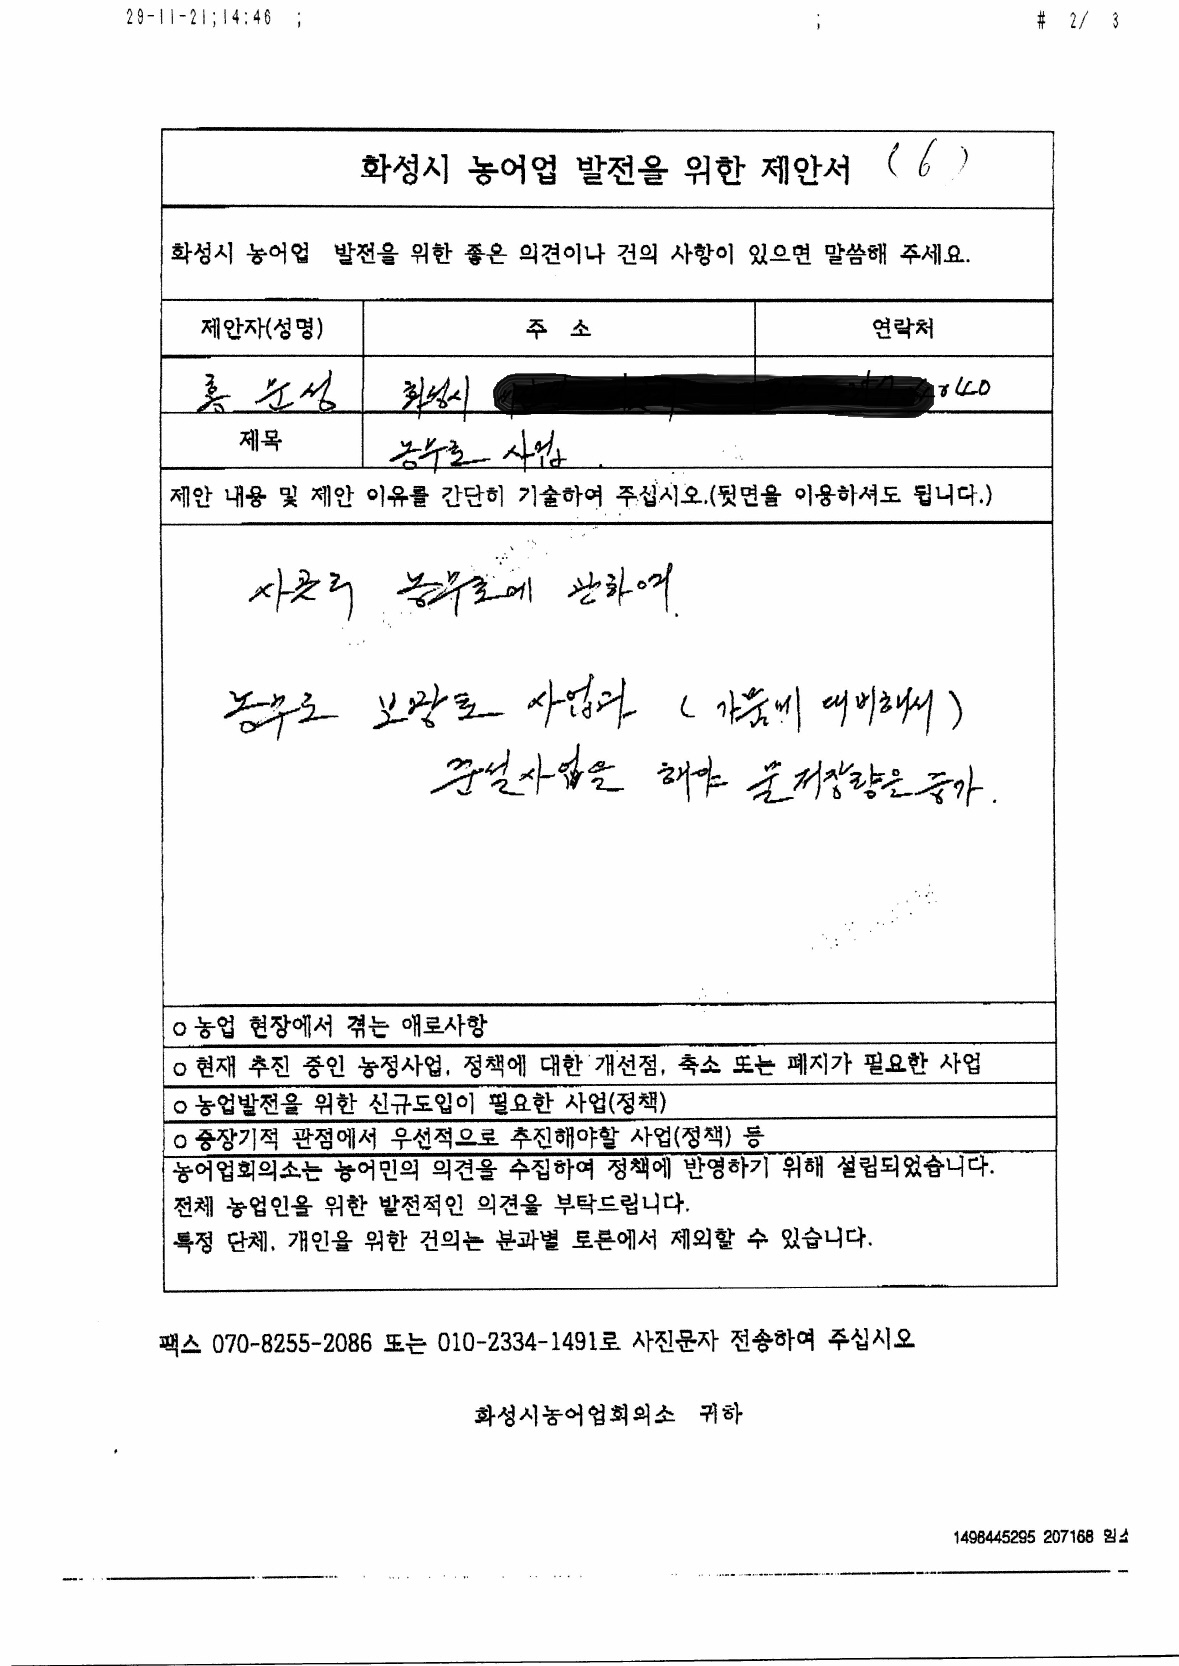 29-11-21;14:46 ; ; # 2/ 3
화성시 농어업 발전을 위한 제안서 (6)
화성시 농어업 발전을 위한 좋은 의견이나 건의 사항이 있으면 말씀해 주세요.
제안자(성명) 주 소 연락처
홍 문 성 화성시 4040
제목 농수로 사업.
제안 내용 및 제안 이유를 간단히 기술하여 주십시오.(뒷면을 이용하셔도 됩니다.)
사곳리 농수로에 관하여.
농수로 보강토 사업과 (가뭄에 대비해서)
준설사업을 해야 물저장량은 증가.
o 농업 현장에서 겪는 애로사항
o 현재 추진 중인 농정사업, 정책에 대한 개선점, 축소 또는 폐지가 필요한 사업
o 농업발전을 위한 신규도입이 필요한 사업(정책)
o 중장기적 관점에서 우선적으로 추진해야할 사업(정책) 등
농어업회의소는 농어민의 의견을 수집하여 정책에 반영하기 위해 설립되었습니다.
전체 농업인을 위한 발전적인 의견을 부탁드립니다.
특정 단체, 개인을 위한 건의는 분과별 토론에서 제외할 수 있습니다.
팩스 070-8255-2086 또는 010-2334-1491로 사진문자 전송하여 주십시오
화성시농어업회의소 귀하
1498445295 207168